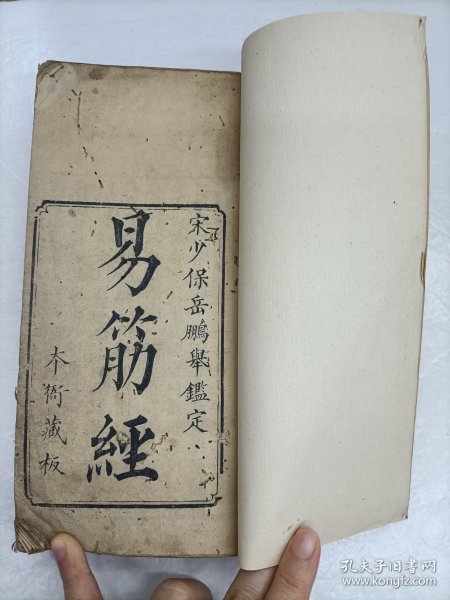 宋少保岳鵬舉鑑定
易筋經
本衙藏板
孔夫子旧书网
www.kongfz.com